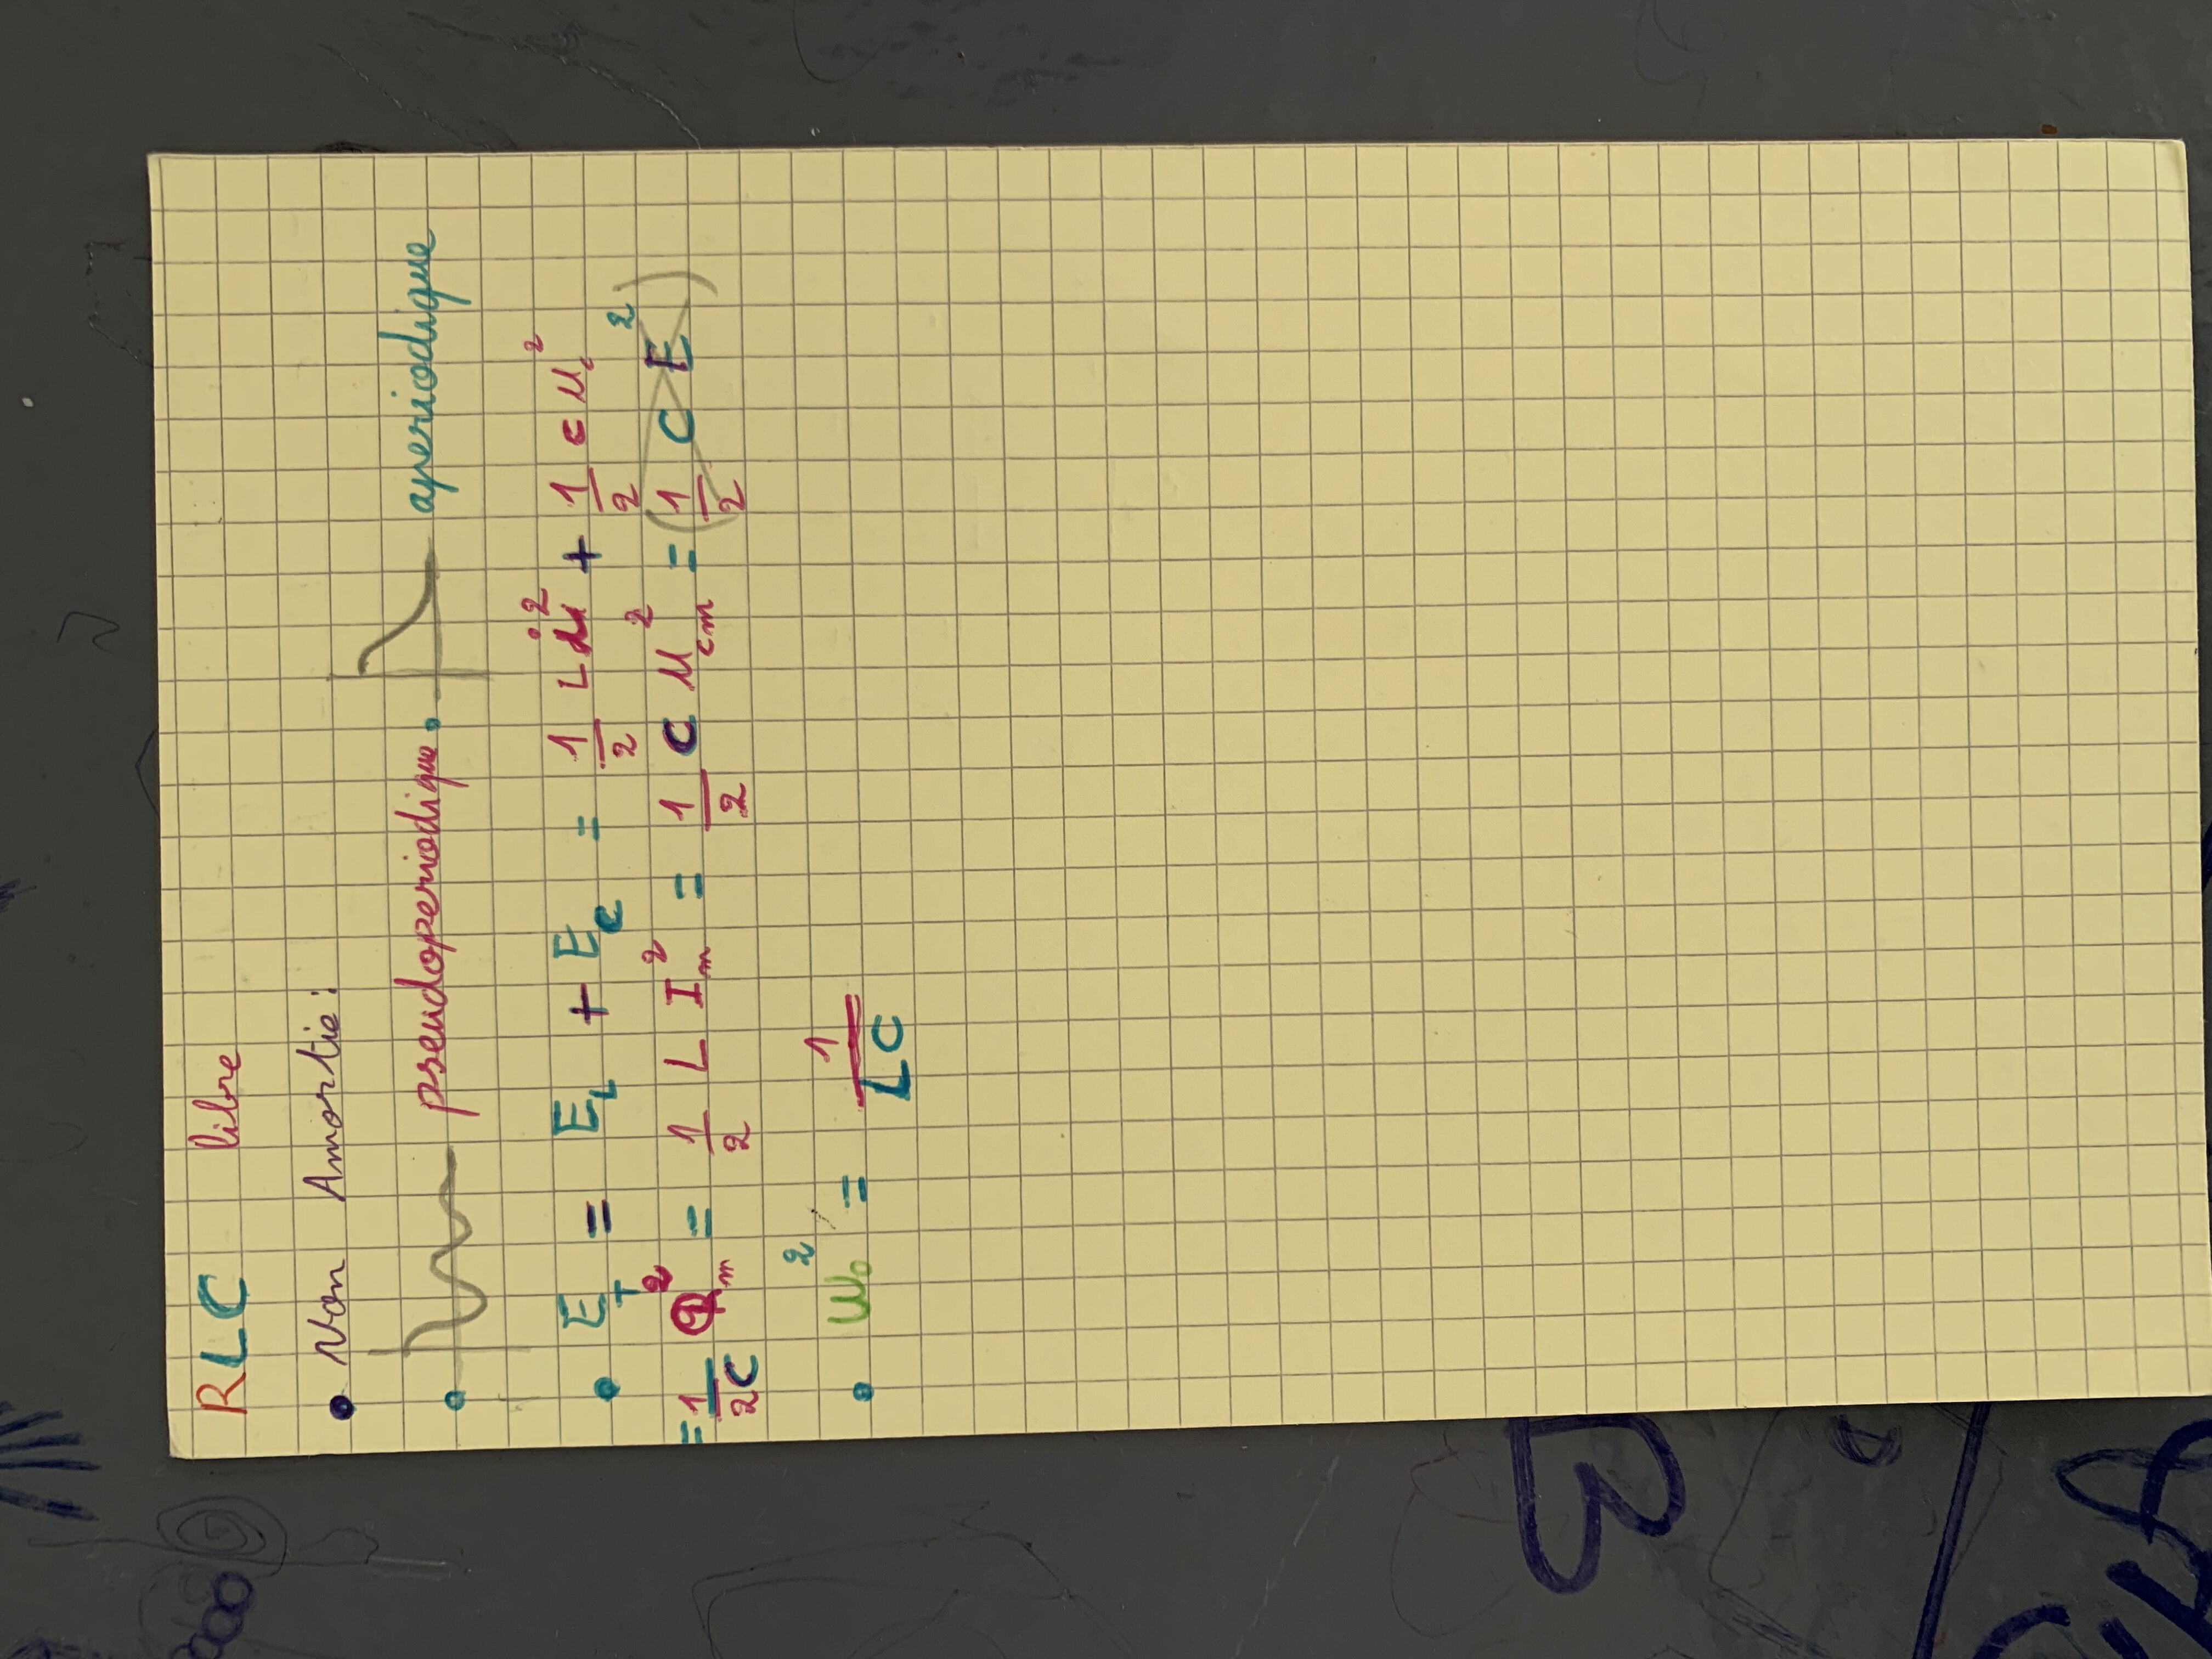 RLC libre
• Non Amortie:
• pseudoperiodique • aperiodique
• E_T = E_L + E_C = 1/2 L i² + 1/2 C u_c²
= 1/2C Q_m² = 1/2 L I_m² = 1/2 C U_cm² = (1/2 C E²)
• W₀² = 1/LC